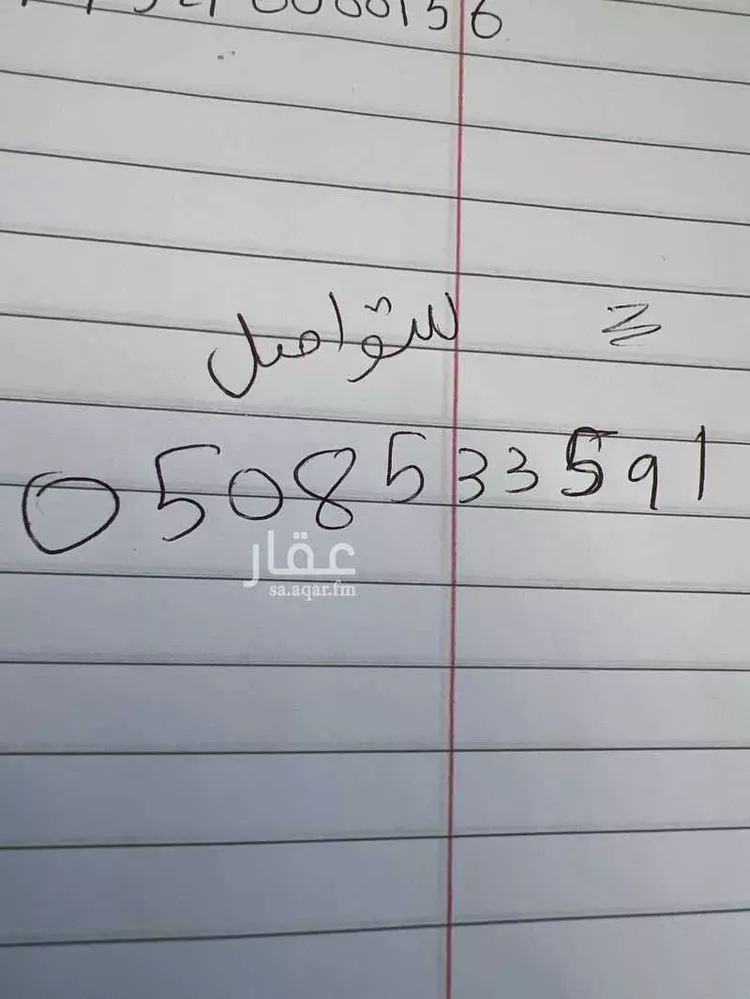 للتواصل
0508533591
عقار
sa.aqar.fm